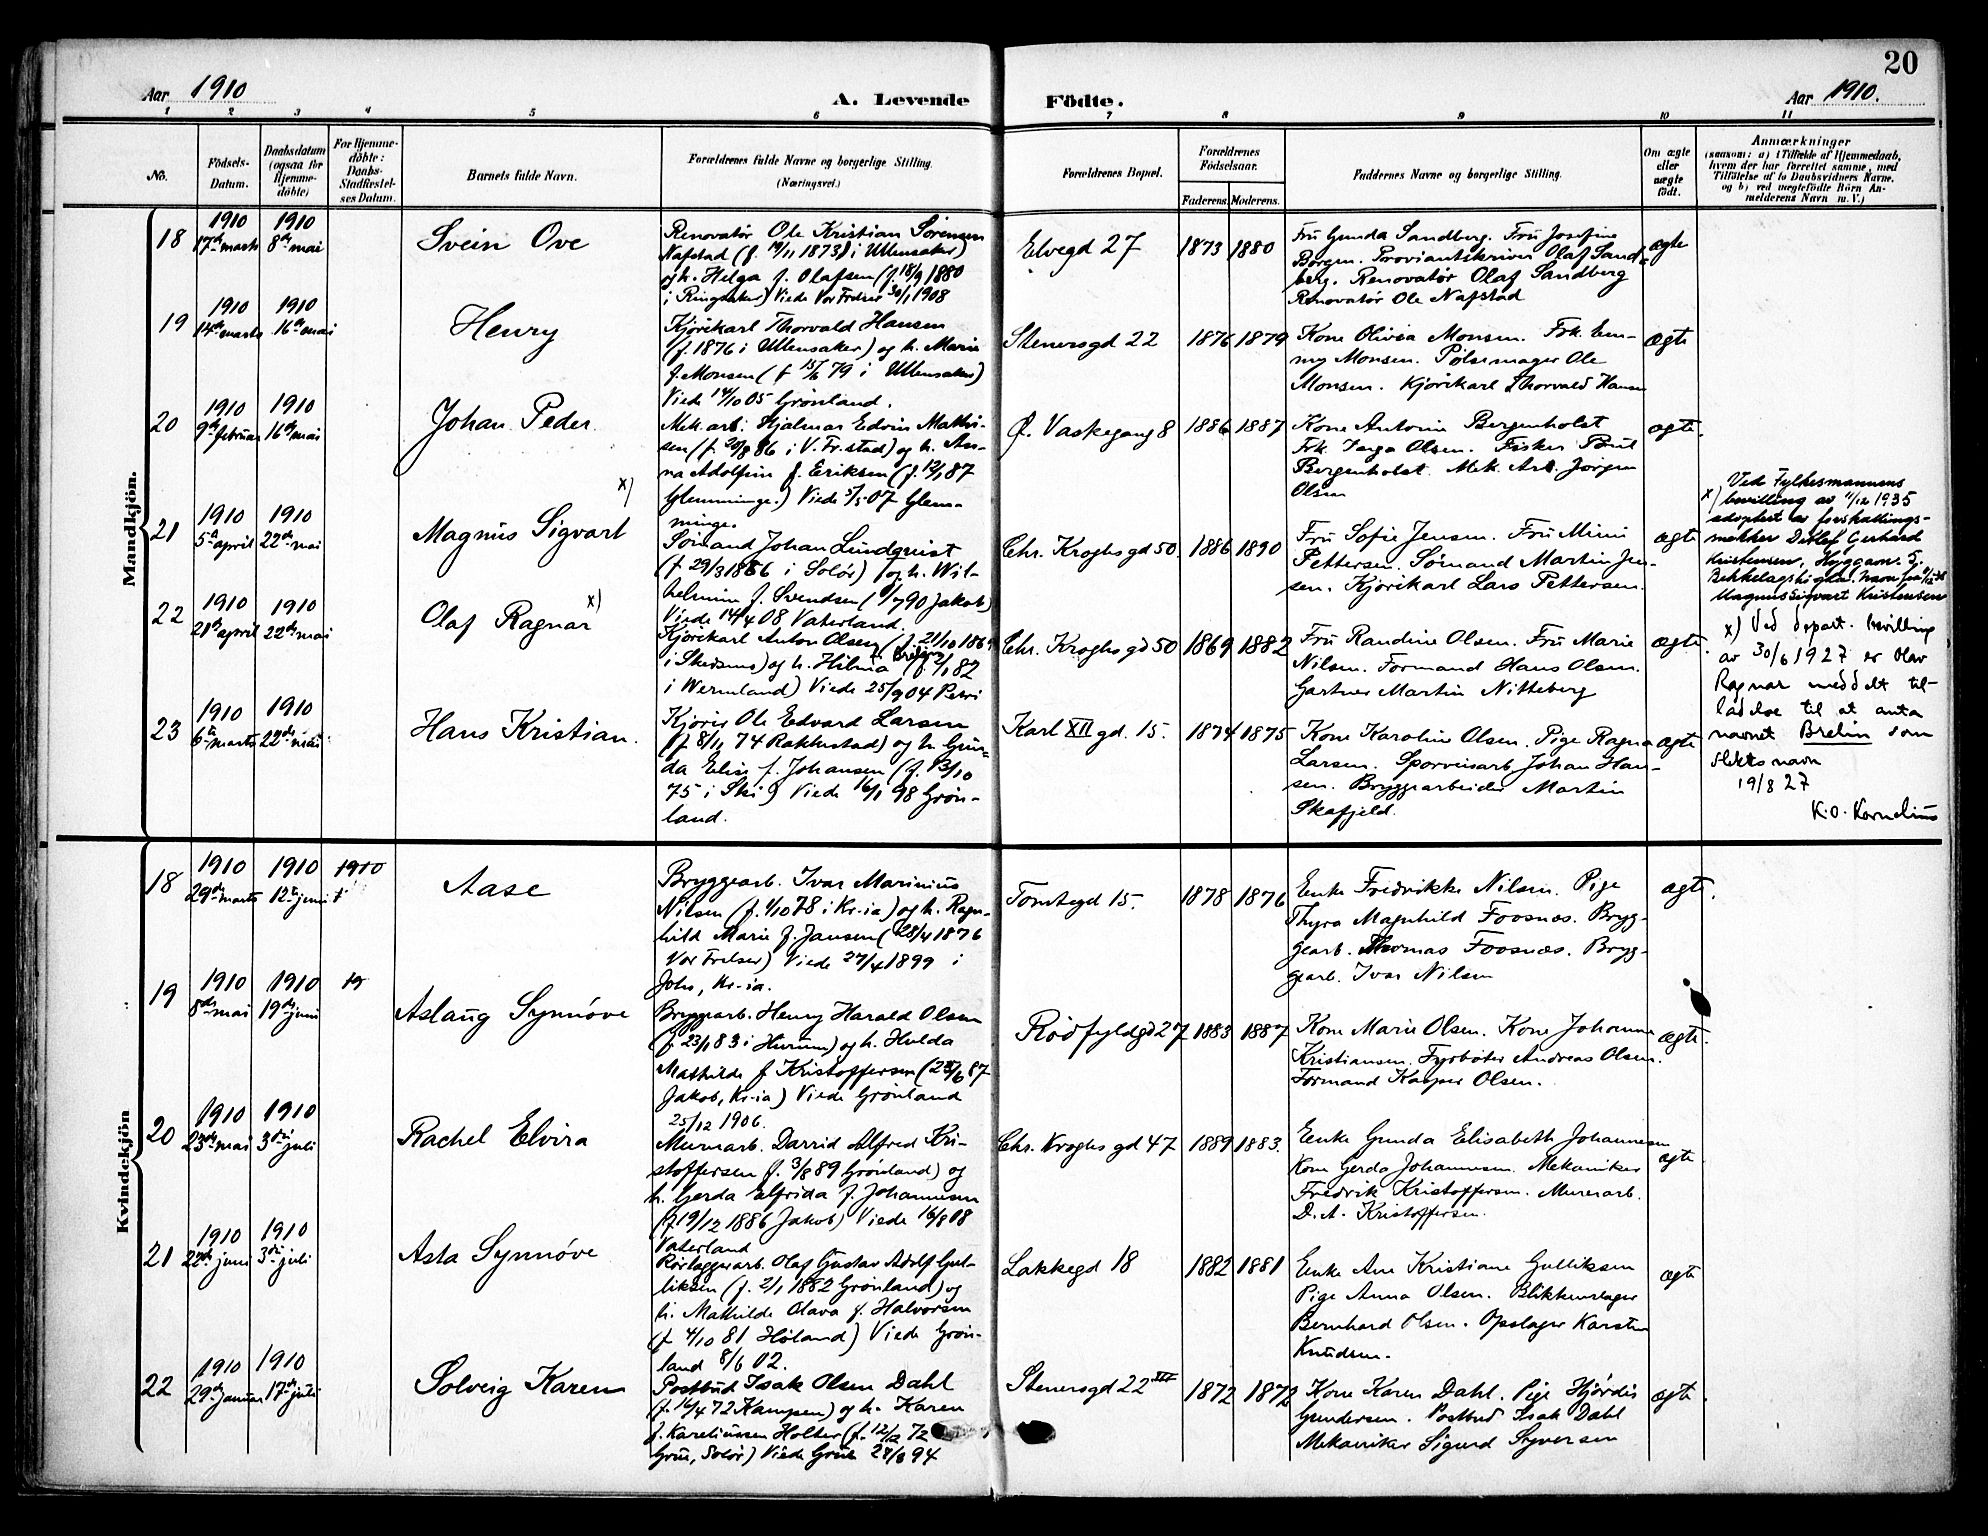 20
Aar 1910
A. Levende Födte.
Aar 1910.
1 2 3 4 5 6 7 8 9 10 11
No.
Födsels-
Datum.
Daabsdatum
(ogsaa for
Hjemme-
döbte)
For Hjemme-
döbte:
Daabs-
Stadfæstel-
ses Datum.
Barnets fulde Navn.
Forældrenes fulde Navne og borgerlige Stilling.
(Næringsvei.)
Forældrenes Bopæl.
Forældrenes
Födselsaar.
Faderens. Moderens.
Faddernes Navne og borgerlige Stilling.
Om ægte
eller
uægte
födt.
Anmærkninger
(saasom: a) i Tilfælde af Hjemmedaab,
hvem der har forrettet samme, med
Tilföielse af to Daabsvidners Navne.
og b) ved uægtefödte Börn An-
melderens Navn m. V.)
Mandkjön.
18
1910
17de marts
1910
8de mai
Svein Ove
Renovatør Ole Kristian Sörensen
Nafstad (f. 19/11 1873 i Ullensaker)
og h. Helga f. Olafsen (f 18/9 1880
i Ringsaker) Viede Vor Frelser 30/1 1908
Elvegd 27
1873 1880
Fru Gunda Sandberg. Fru Josefine
Borgen. Proviantskriver Olaf Sand-
berg. Renovatør Olaf Sandberg
Renovatør Ole Nafstad
ægte
19
1910
14de marts
1910
16de mai
Henry
Kjörekarl Thorvald Hansen
(f. 1876 i Ullensaker) og h. Marie
f. Monsen (f 15/6 79 i Ullensaker)
Viede 14/10 05 Grönland.
Stenersgd 22
1876 1879
Kone Olivia Monsen. Frk. Em-
my Monsen. Pölsemager Ole
Monsen. Kjörekarl Thorvald Hansen
ægte
20
1910
9de februar
1910
16de mai
Johan Peder
Mek. arb. Hjalmar Edvin Mathi-
sen (f. 20/8 86 i V. Fr.stad) og h. An-
na Adolfine f. Eriksen (f. 12/1 87
Glemminge.) Viede 5/5 07 Glem-
minge.
Ö. Vaskegang 8
1886 1887
Kone Antonie Bergenholst
Frk. Inga Olsen. Fisker Poul
Bergenholst. Mek. Arb. Jørgen
Olsen
ægte.
21
1910
5te april
1910
22de mai
Magnus Sigvart x)
Sömand Johan Lundquist
(f 29/3 1886 i Solör) og h. Wil-
helmine f. Svendsen ( 90 Jakob)
Viede 14/4 08 Vaterland.
Chr. Kroghs gd 50.
1886 1890
Fru Sofie Jensen. Fru Mimi
Pettersen. Sömand Martin Jen-
sen. Kjörekarl Lars Pettersen.
ægte
x) Ved Fylkesmannens
bevilling av 11/12 1935
adoptert av forskallings-
snekker Detlef Gerhard
Kristensen, Hyggom. 5.
Bekkelagshögda. Navn fra
Magnus Sigvart Kristensen
22
1910
21de april
1910
22de mai
Olaf Ragnar x)
Kjörekarl Anton Olsen (f. 21/10 1869
i Skedsmo) og h. Hilma f. Brelin (f 1/1 82
i Wermland) Viede 25/9 04 Petri
Chr. Kroghs gd 50
1869 1882
Fru Randine Olsen. Fru Marie
Nilsen. Formand Hans Olsen.
Gartner Martin Nitteberg
ægte.
x) Ved depart. bevilling
av 30/6 1927 er Olav
Ragnar meddelt til-
ladelse til at anta
navnet Brelin som
slektsnavn
19/8 27
K.O. Kornelius
23
1910
6te marts
1910
22de mai
Hans Kristian.
Kjörer Ole Edvard Larsen
(f 8/11 74 Rakkestad) og h. Gun-
da Elise f. Johansen (f. 13/10
75 i Ski) Viede 16/1 98 Grön-
land.
Karl XII gd. 15.
1874 1875
Kone Karoline Olsen. Pige Ragna
Larsen. Sporveisarb Johan Han-
sen. Bryggearbeider Martin
Skafjeld.
ægte
Kvindekjön
18
1910
29de marts
1910
12te juni
1910
Aase
Bryggearb. Ivar Marinius
Nilsen (f. 1/10 78 i Kr-ia) og h. Ragn-
hild Marie f. Jansen (28/4 1876
Vor Frelser) Viede 27/4 1899 i
Johs, Kr-ia.
Tomtegd 15.
1878 1876
Enke Fredrikke Nilsen. Pige
Thyra Magnhild Foosnæs. Bryg-
gearb. Thomas Foosnæs. Bryg-
gearb. Ivar Nilsen
ægte.
19
1910
8de mai
1910
19de juni
19
Aslaug Synnöve
Bryggarb. Henry Harald Olsen
(f 23/1 83 i Hurum) og h. Hulda
Mathilde f Kristoffersen (25/6 87
Jakob, Kr-ia) Viede Grönland
25/12 1906.
Rödfyldgd 27
1883 1887
Kone Marie Olsen. Kone Johanne
Kristiansen. Fyrböter Andreas Olsen.
Formand Kasper Olsen.
ægte.
20
1910
23de mai
1910
3die juli
Rachel Elvira
Murarb. Darrid Alfred Kri-
stoffersen f. 3/8 89 Grönland) og
h. Gerda Elfrida f. Johannesen
(f. 19/12 1886 Jakob) Viede 16/8 08
Vaterland
Chr. Kroghs gd 47
1889 1883.
Enke Gunda Elisabeth Johannesen
Kone Gerda Johannesen. Mekaniker
Fredrik Kristoffersen. Murerarb.
D. A. Kristoffersen.
ægte
21
1910
22de juni
1910
3die juli
Asta Synnöve
Rörlæggerarb. Olaf Gustav Adolf Gul-
liksen (f. 2/1 1882 Grönland) og
h. Mathilde Olava f. Halvorsen
(f 4/10 81 Höland) Viede Grön-
land 8/6 02.
Lakkegd 18
1882 1881
Enke Ane Kristiane Gulliksen
Pige Anna Olsen. Blikkenslager
Bernhard Olsen. Opslager Karsten
Knudsen.
ægte
22
1910
29de januar
1910
17de juli
Solveig Karen
Postbud Isak Olsen Dahl
(f. 16/4 72 Kampen) og h. Karen
f. Kareliussen Holter (f. 12/2 72
Grue, Solör) Viede Grue 28/6 94
Stenersgd 22 III
1872 1872
Kone Karen Dahl. Pige Hjördis
Gundersen. Postbud Isak Dahl
Mekaniker Sigurd Syversen
ægte.